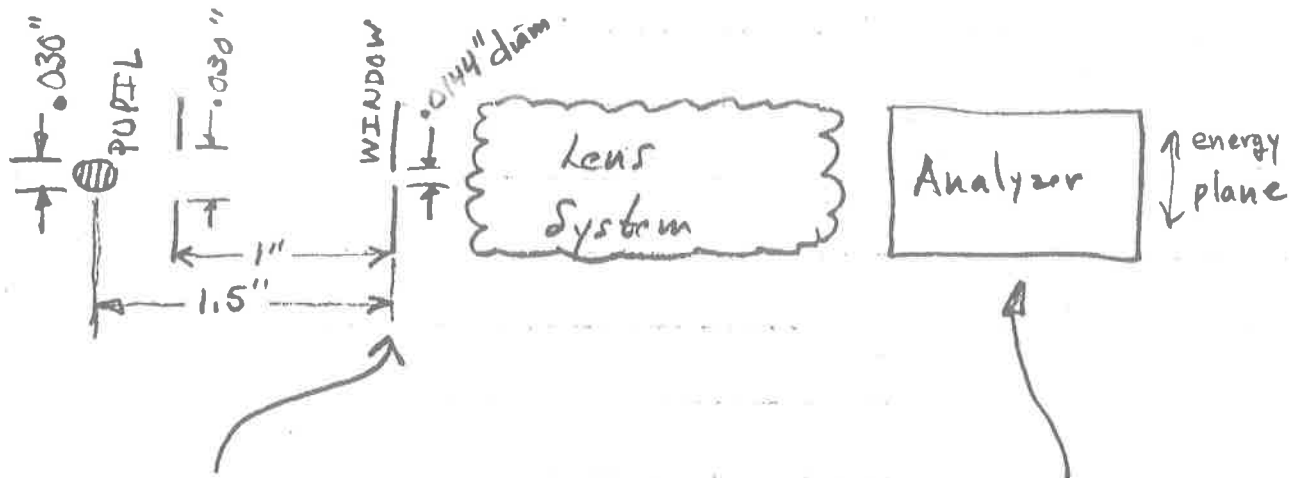 .030"
PUPIL
.030"
WINDOW
.0144" diam
Lens
System
Analyzer
energy
plane
1"
1.5"